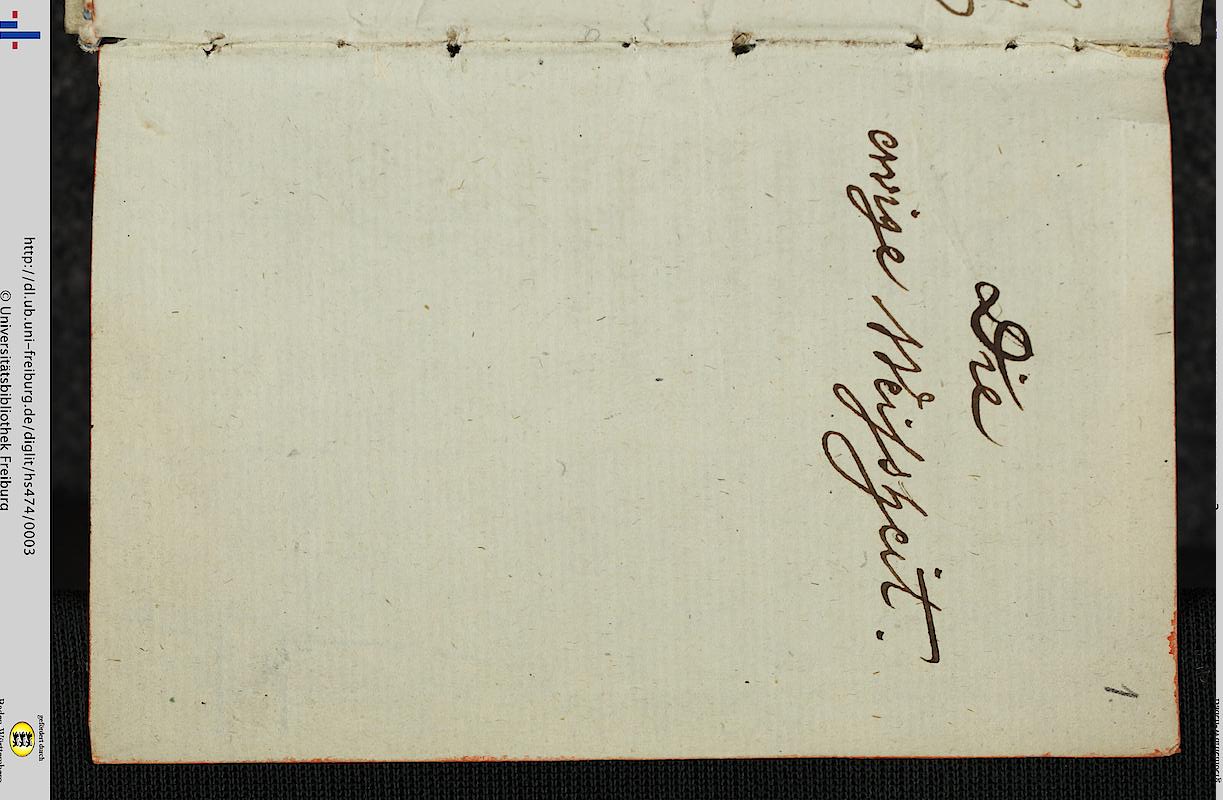 1
Die
ewige Weisheit.
http://dl.ub.uni-freiburg.de/diglit/hs474/0003
© Universitätsbibliothek Freiburg
gefördert durch